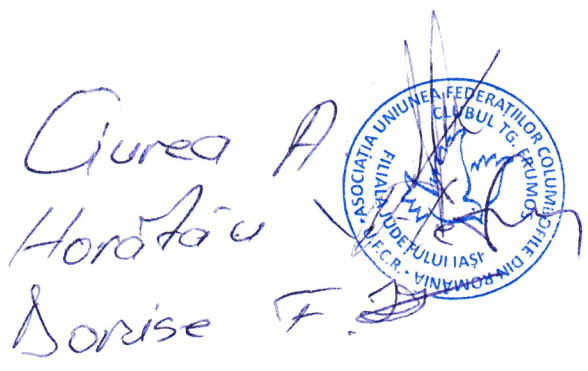 Ciurea A
Horătău V
Donise F.D
ASOCIAȚIA UNIUNEA FEDERAȚIILOR COLUMBOFILE DIN ROMÂNIA
• U.F.C.R. •
CLUBUL TG. FRUMOS
FILIALA JUDEȚULUI IAȘI